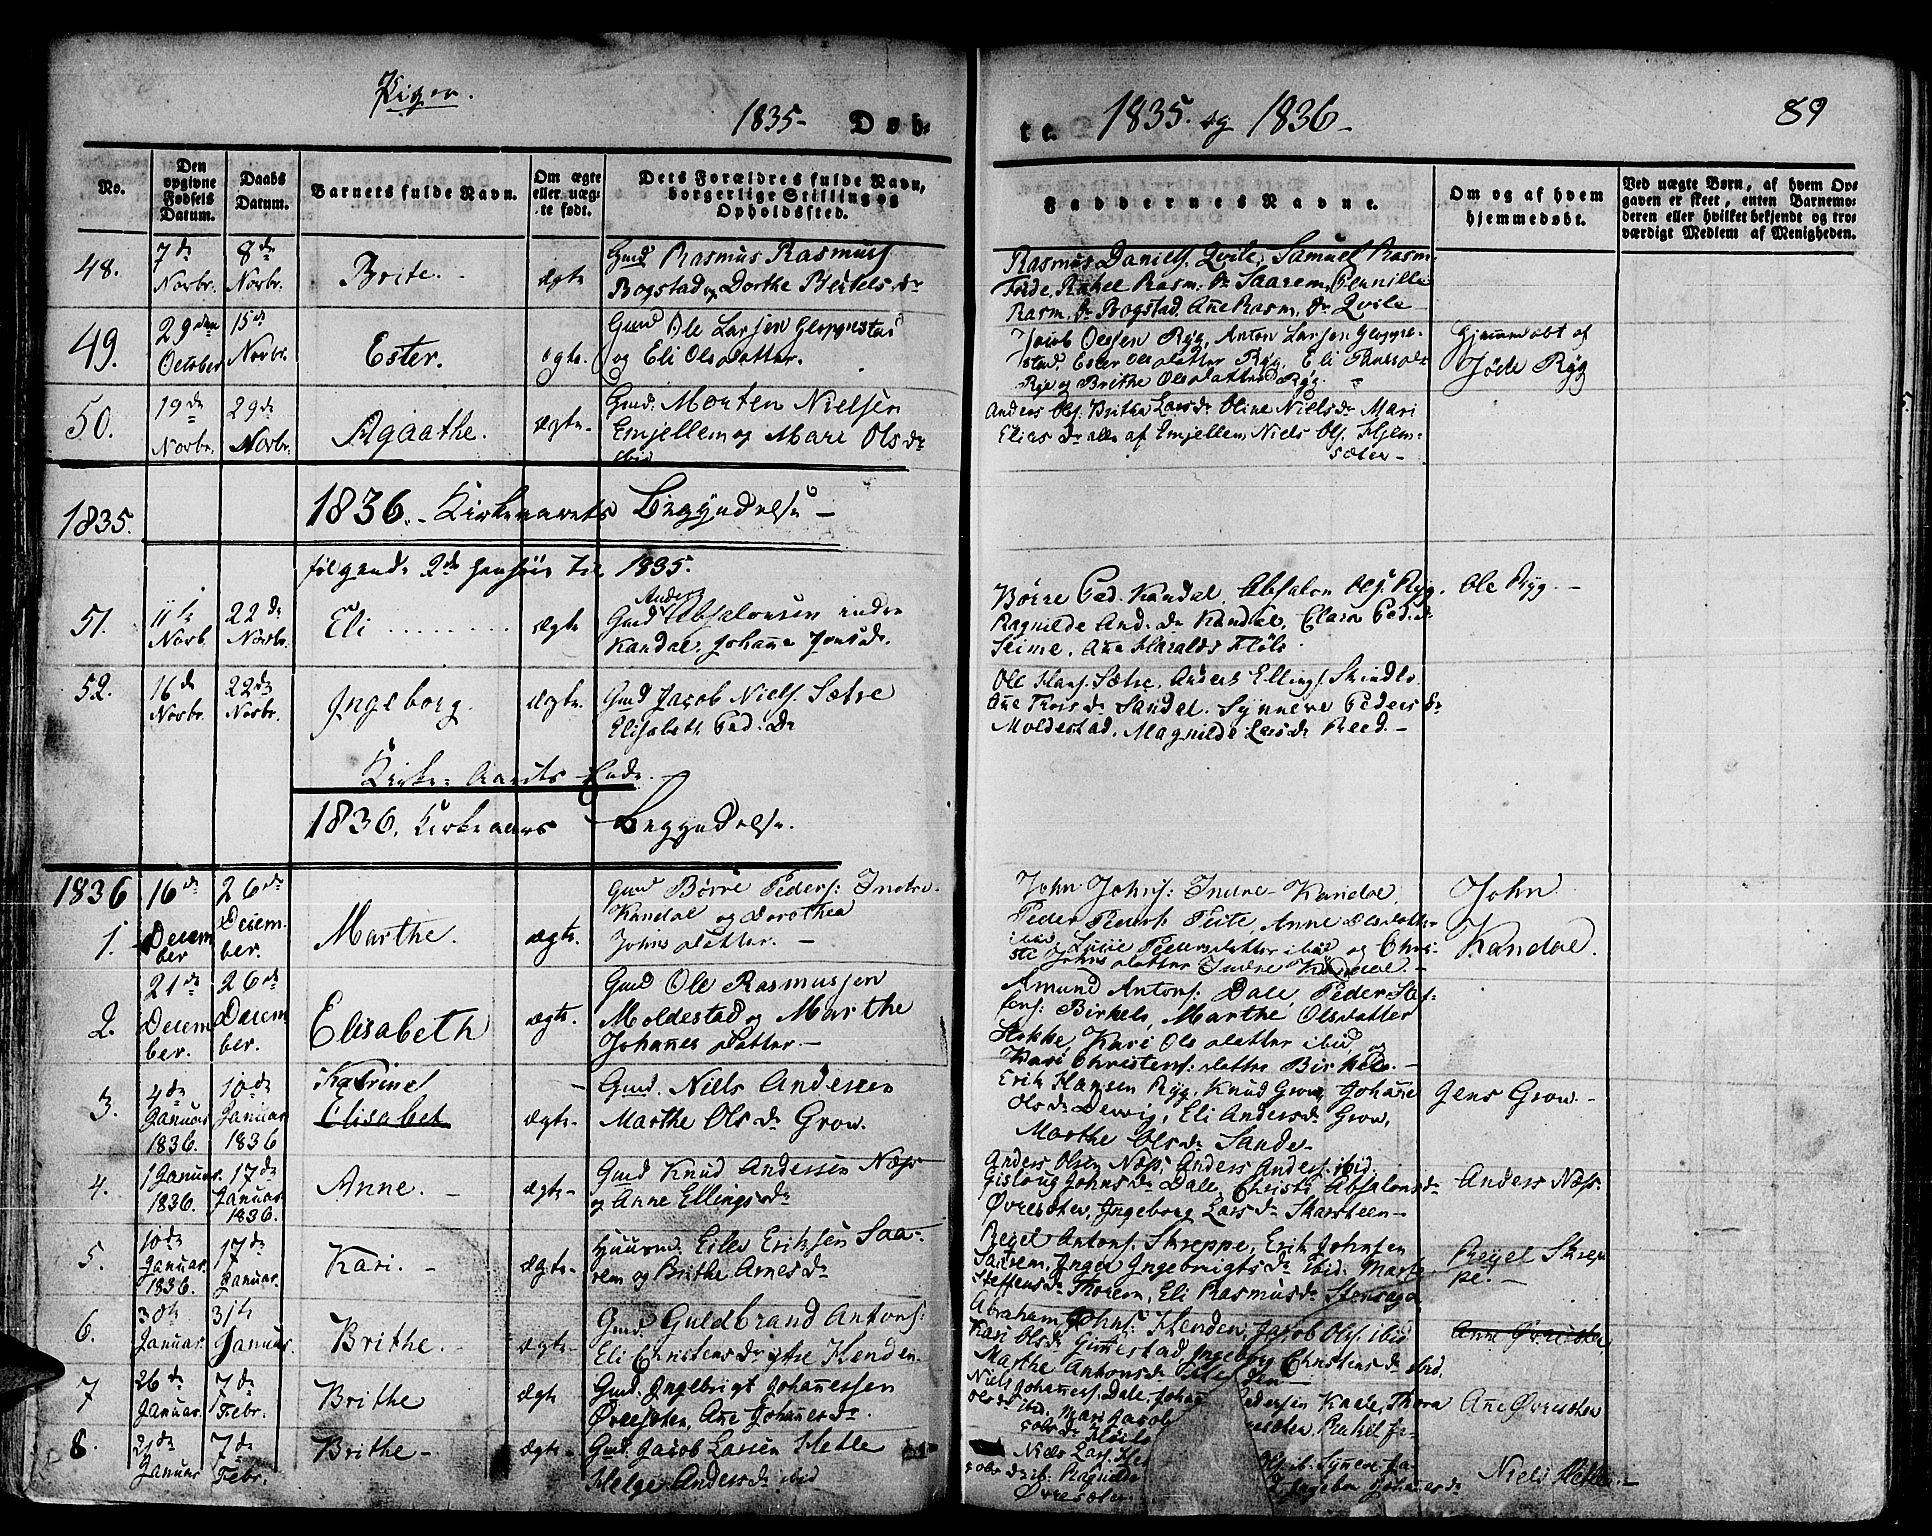 Piger.
1835- Døb-
te. 1835. og 1836-
89
No.
Den opgivne Fødsels Datum.
Daabs Datum.
Barnets fulde Navn.
Om ægte eller uægte født.
Dets Forældres fulde Navn, borgerlige Stilling og Opholdssted.
Faddernes Navne.
Om og af hvem hjemmedøbt.
Ved uægte Børn, af hvem Opgaven er skeet, enten Barnemoderen eller hvilket bekjendt og troværdigt Medlem af Menigheden.
48. 7de Novbr. 8de Novbr. Brite. ægte
Gmd Rasmus Rasmuss
Bogstad og Dorthe Bertels dr
Rasmus Daniels. Qvile, Samuel Rasm.
Førde, Rahel Rasm. dr Saarem, Pernille
Rasm. dr Bogstad, Ane Rasm. dr Qvile
49. 29den October 15de Novbr. Ester. ægte.
Gmd Ole Larsen Gloppestad
og Eli Olsdatter.
Jacob Olssen Ryg, Anton Larsen Gloppe-
stad, Ester Olsdatter Ryg, Eli
Ryg og Brithe Olsdatter Ryg.
Hjemmedøbt af
Ryg
50. 19de Novbr. 29de Novbr. Agaathe. ægte.
Gmd. Morten Nielsen
Emjellem og Mari Ols dr
ibid
Anders Ols. Brithe Lars dr Oline Niels dr Mari
Elias dr alle af Emjellem, Niels Ols. Hjem-
sæter-
1835. 1836.- Kirkeaarets Begyndelse-
følgende 2de til 1835.
51. 11te Novb. 22de Novbr. Eli ......... ægte
Anders
Gmd Absalonsen indre
Kandal, Johane Jons dr.
Børre Ped. Kandal, Absalon Ols. Ryg.
Ragnilde And. dr Kandal, Clara Ped. dr
Seime, Ane Haralds Fløto.
Ole Ryg.-
52. 16de Novbr. 22de Novbr. Ingeborg. ægte.
Gmd Jacob Niels. Sætre
Elisabeth Ped. dr
Ole Hans. Sætre. Anders Ellings. Skindlo
Ane dr Sandal. Synneve Peders dr
Moldestad, Magnilde Lars dr Reed.-
Kirke-Aarets-Ende.-
1836. Kirkeaars Begyndelse.
1836
1. 16de December 26de December. Marthe. ægte.
Gmd Børre Peders: Indre-
Kandal og Dorothea
Johns datter.-
John Johns: Indre- Kandal,
Peder Peders: Teite, Anne Olsdatter
ibid, Pedersdatter ibid og Chri-
ste Johns datter Indre Kandal.-
John
Kandal.
2. 21de December. 26de December. Elisabeth ægte.
Gmd Ole Rasmussen
Moldestad og Marthe
Johanes datter.-
Amund Antons: Dale, Peder Stef-
fens: Birkelo, Marthe Olsdatter
Hokke, Kari Ols datter ibid og
Kari Christens: datter Birkelo.-
3. 4de Januar 1836. 10de Januar 1836 Katrine
Elisabet ægte-
Gmd. Niels Andersen
Marthe Ols dr Grow.
Erik Hansen Ryg, Knud Grow, Johane
Ols dr Dervig, Eli Anders dr Grow,
Marthe Ols dr Sande-
Jens Grow.-
4. 1 Januar. 1836. 17de Januar 1836. Anne.- ægte-
Gmd Knud Andersen Næss
og Anne Ellings dr
Anders Olsen Næss, Anders Anders. ibid.
Gislaug Johns dr Dale, Christi Absalons dr
Øvresæter, Ingeborg Lars dr Skarsteen-
Anders Næss.
5. 10de Januar. 1836. 17de Januar. Kari.- ægte-
Huusmd. Eilev Eriksen Saa-
rem og Brithe Arnes dr
Reyel Antons. Skreppe, Erik Johnsen
Saarem, Inger Ingebrigts dr ibid. Marte
Steffens dr Thoreim, Eli Rasmus dr Stensager
Reyel Skrep
pe.-
6. 30te Januar. 31te Januar. Brithe. ægte-
Gmd. Guldbrand Antons.
Eli Christens dr ytre Henden-
Abraham Johns. Henden, Jacob Ols. ibid
Kari Ols dr Gimmestad Ingeborg Christens dr ibid.
Marthe Antons dr Henden
Ane Øvresæter
7 26de Januar. 7de Febr. Brithe ægte-
Gmd. Ingebrigt Johanessen
Øvresæter, Ane Johanes dr
Niels Johaness. Dale, Johan
ibid. Mari Jacob
ndersen Kaale, Thora
esæter, Rakel Ja-
Ane Øvresæter
8. 21de Januar 7de Febr. Brithe- ægte-
Gmd. Jacob Larsen Hetle
Helge Anders dr ibid
Niels Lars. He
dr ib. Ragnilde
Øvresæter
Ols. ib. Synneve Ja-
Ingebor Johanes dr
Niels Hetle.-